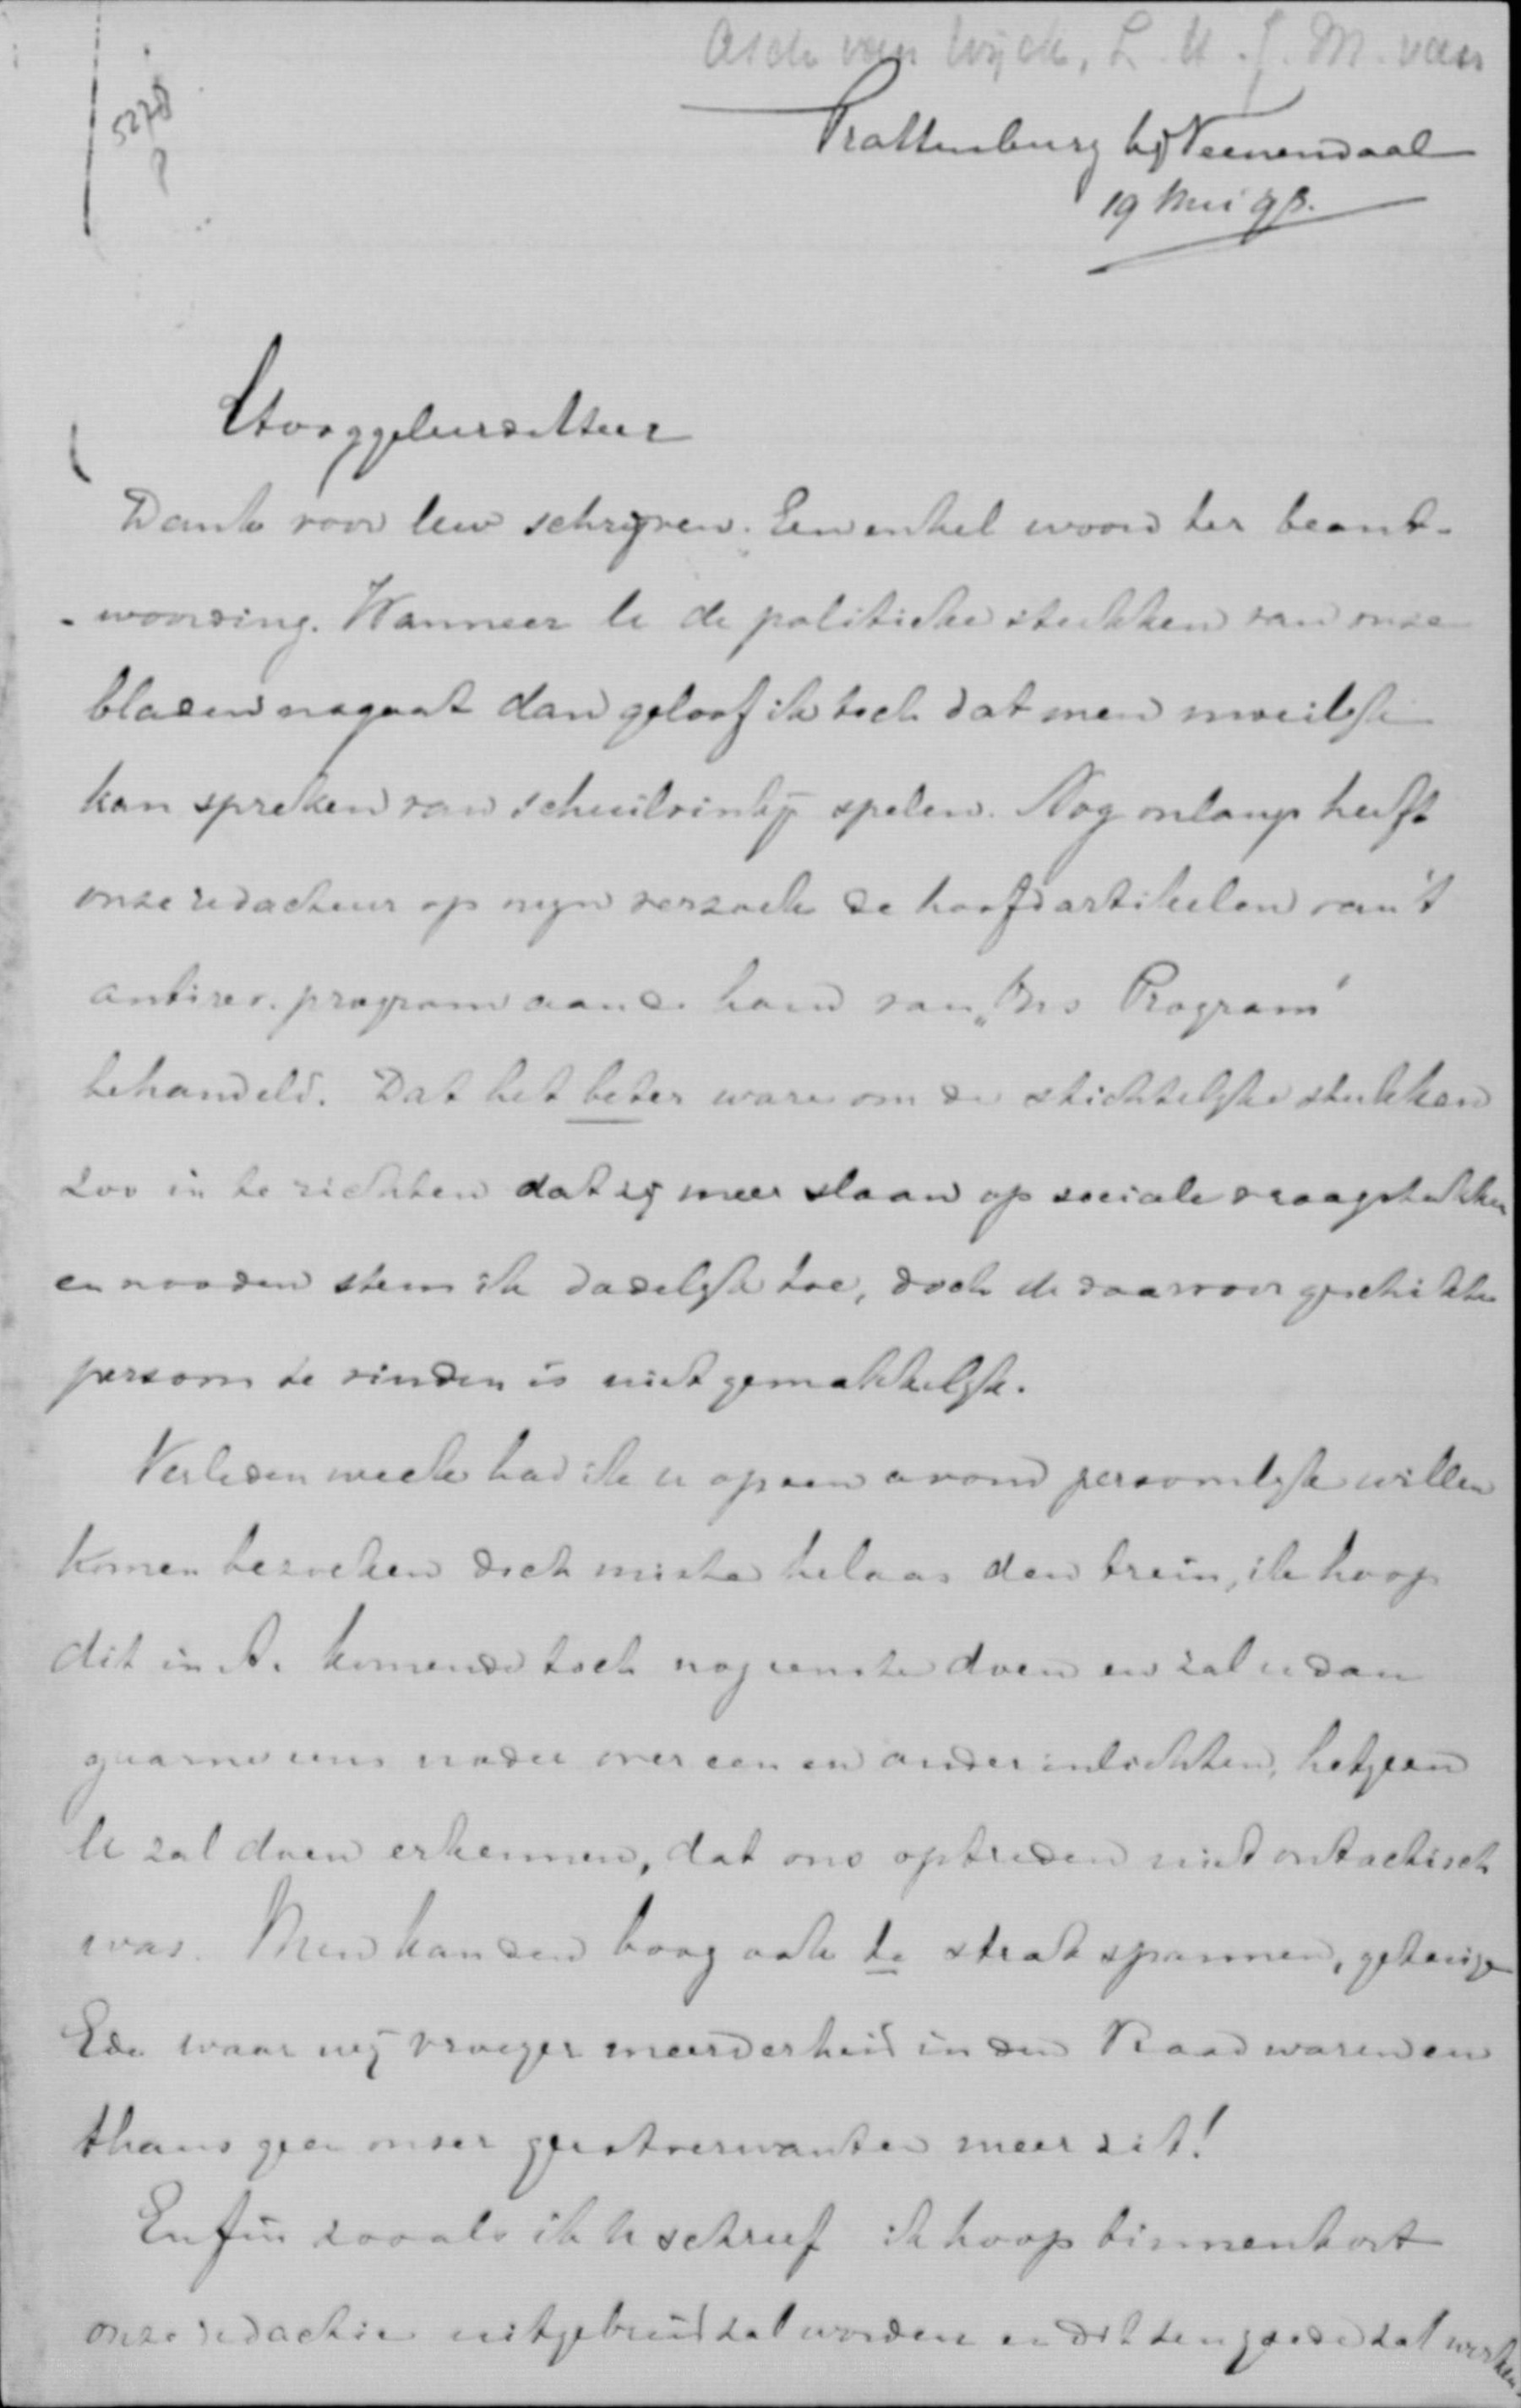 Asch van Wijck, L. H. J. M. van
5278
Prattenburg bij Veenendaal
19 Mei 93.
Hooggeleerde Heer
Dank voor Uw schrijven. Een enkel woord ter beant-
-woording. Wanneer U de politieke stukken van onze
bladen nagaat dan geloof ik toch dat men moeilijk
kan spreken van schuilvinkje spelen. Nog onlangs heeft
onze redacteur op mijn verzoek de hoofdartikelen van 't
antirev. program aan de hand van „Ons Program"
behandeld. Dat het beter ware om de stichtelijke stukken
zoo in te richten dat zij meer slaan op sociale vraagstukken
en nooden stem ik dadelijk toe, doch de daarvoor geschikte
persoon te vinden is niet gemakkelijk.
Verleden week had ik u op een avond persoonlijk willen
komen bezoeken doch miste helaas den trein, ik hoop
dit in 't komende toch nog eens te doen en zal u dan
gaarne eens nader over een en ander inlichten, hetgeen
U zal doen erkennen, dat ons optreden niet ontactisch
was. Men kan den boog ook te strak spannen, getuige
Ede waar wij vroeger meerderheid in den Raad waren en
thans geen onzer geestverwanten meer zit!
Enfin zooals ik U schreef ik hoop binnenkort
onze redactie uitgebreid zal worden en dit ten goede zal werken.